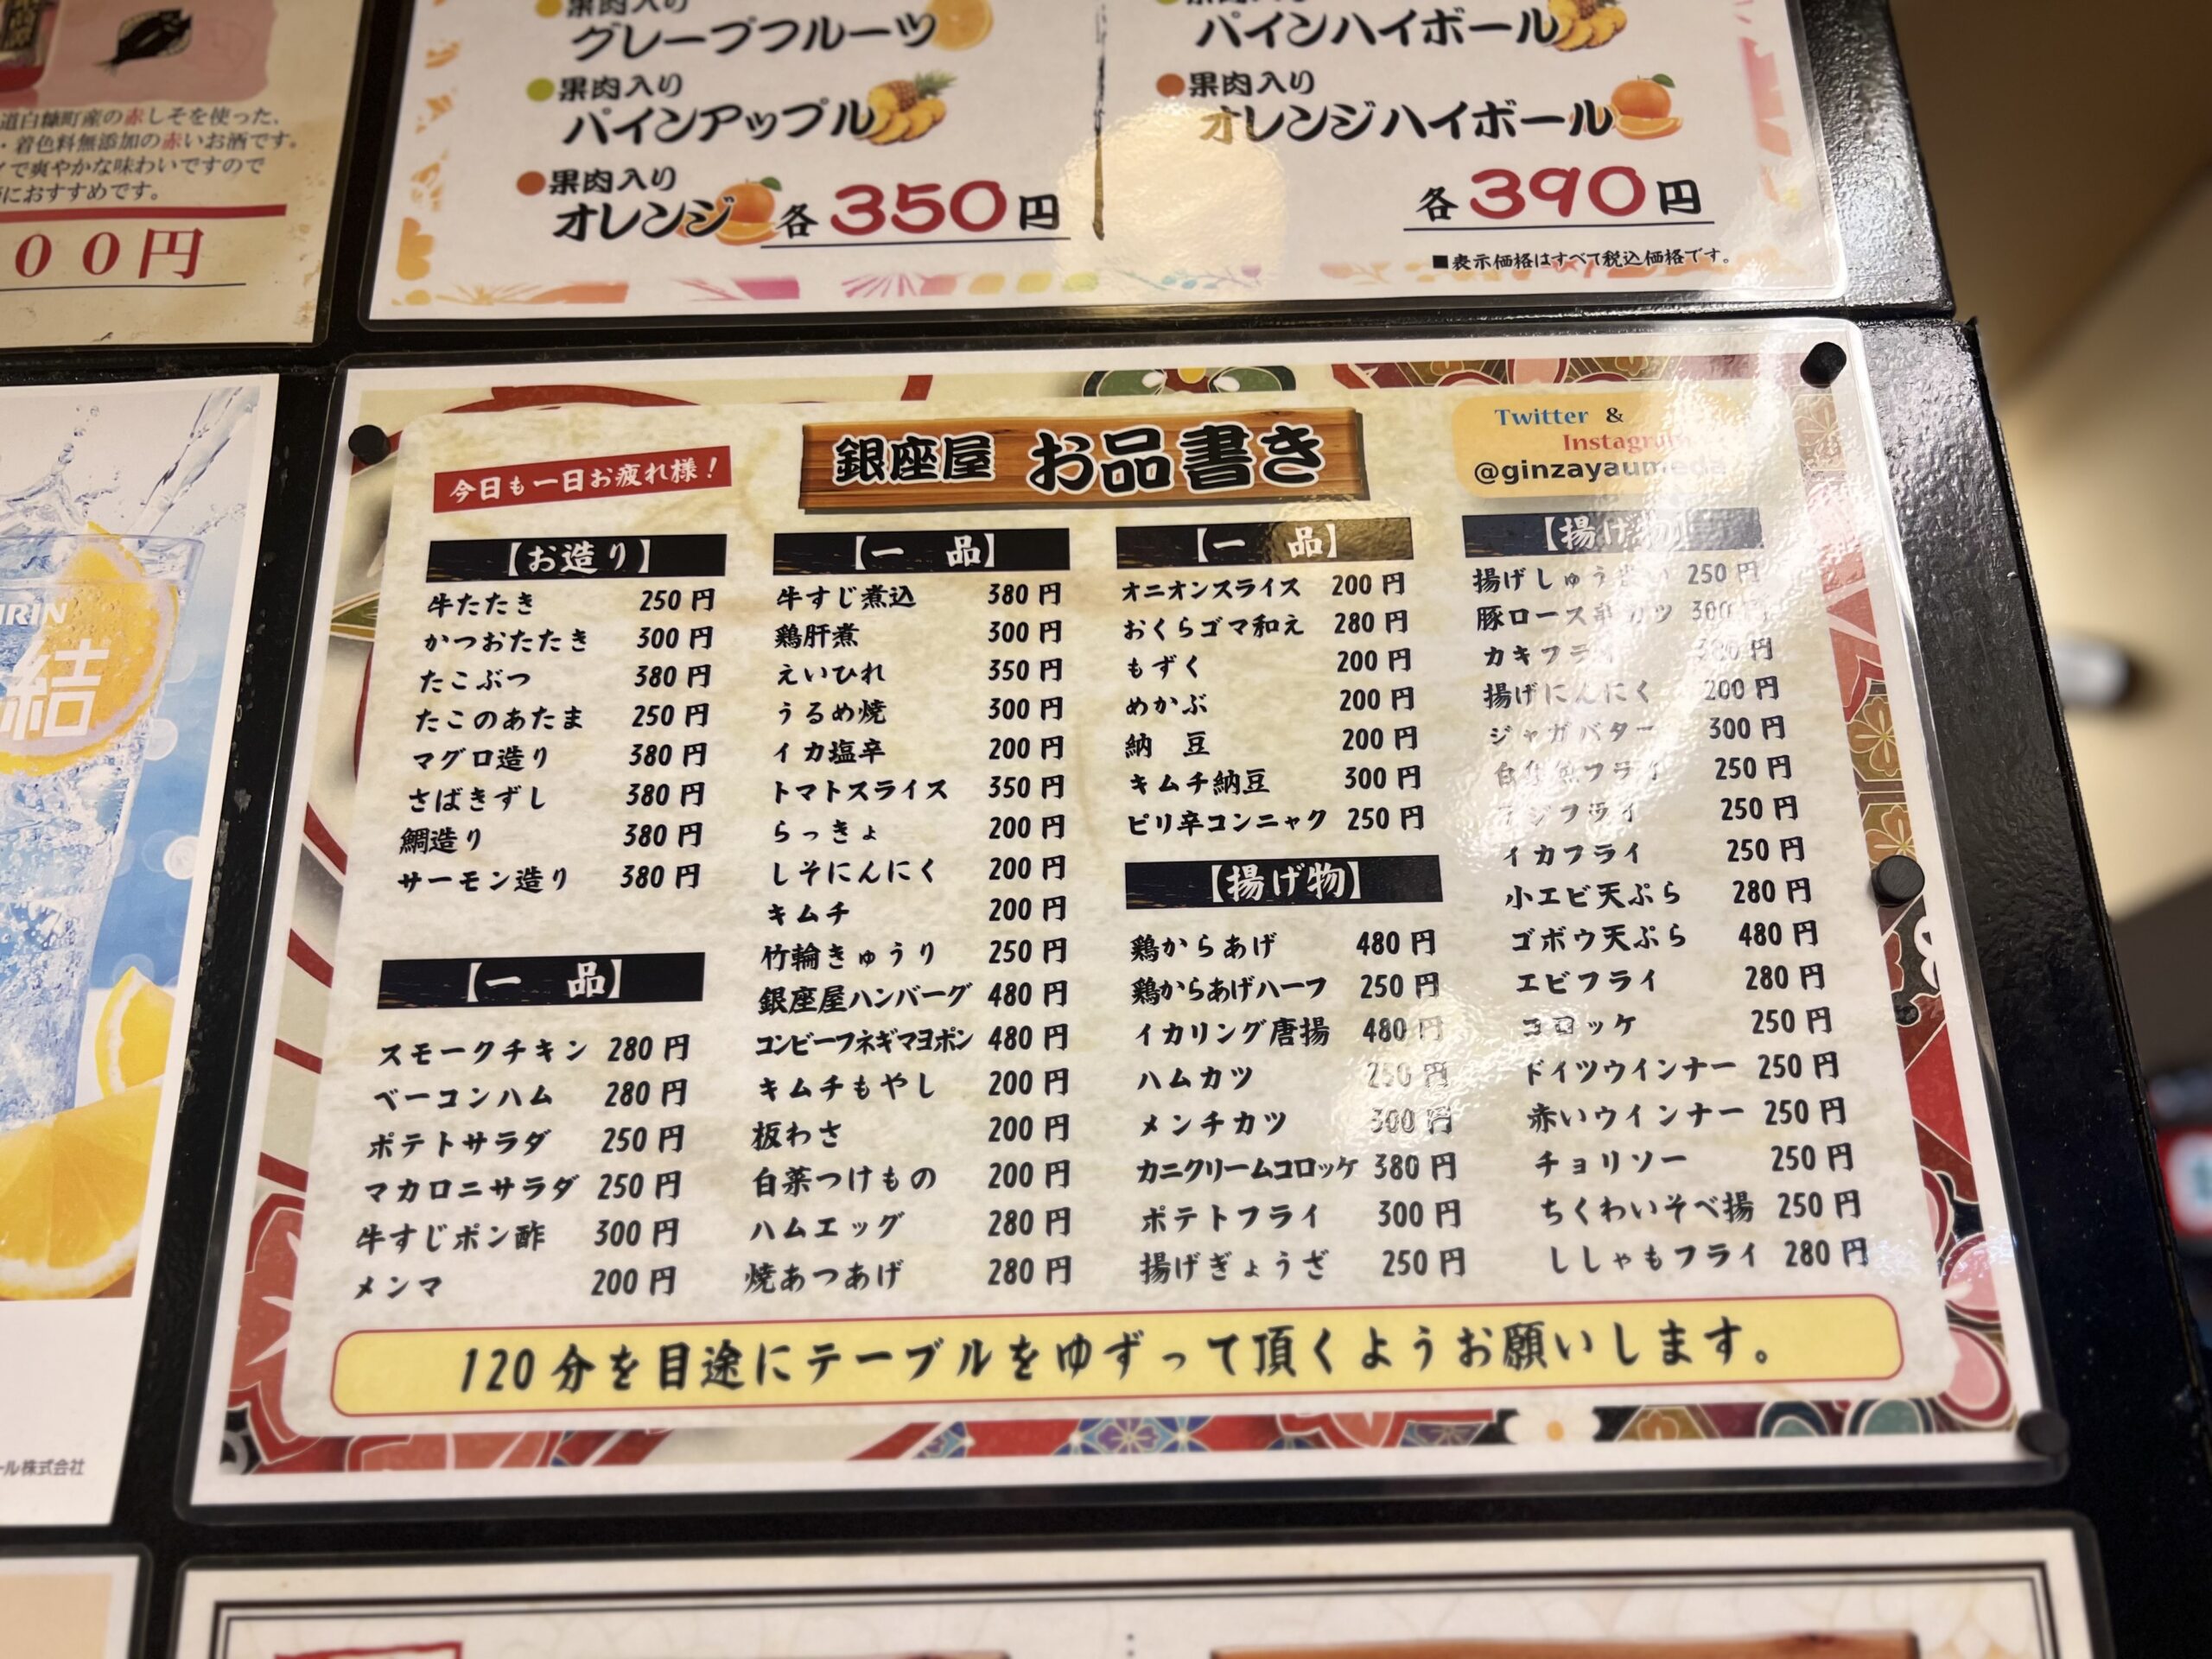 道白糠町産の赤しそを使った、
・着色料無添加の赤いお酒です。
で爽やかな味わいですので
におすすめです。
００円
果肉入り
グレープフルーツ
果肉入り
パインアップル
果肉入り
オレンジ 各350円
パインハイボール
果肉入り
オレンジハイボール
各390円
■表示価格はすべて税込価格です。
IRIN
結
ール株式会社
今日も一日お疲れ様！
銀座屋 お品書き
Twitter &
Instagram
@ginzayaumeda
【お造り】
牛たたき 250円
かつおたたき 300円
たこぶつ 380円
たこのあたま 250円
マグロ造り 380円
さばきずし 380円
鯛造り 380円
サーモン造り 380円
【一　品】
スモークチキン 280円
ベーコンハム 280円
ポテトサラダ 250円
マカロニサラダ 250円
牛すじポン酢 300円
メンマ 200円
【一　品】
牛すじ煮込 380円
鶏肝煮 300円
えいひれ 350円
うるめ焼 300円
イカ塩辛 200円
トマトスライス 350円
らっきょ 200円
しそにんにく 200円
キムチ 200円
竹輪きゅうり 250円
銀座屋ハンバーグ 480円
コンビーフネギマヨポン 480円
キムチもやし 200円
板わさ 200円
白菜つけもの 200円
ハムエッグ 280円
焼あつあげ 280円
【一　品】
オニオンスライス 200円
おくらゴマ和え 280円
もずく 200円
めかぶ 200円
納　豆 200円
キムチ納豆 300円
ピリ辛コンニャク 250円
【揚げ物】
鶏からあげ 480円
鶏からあげハーフ 250円
イカリング唐揚 480円
ハムカツ 250円
メンチカツ 300円
カニクリームコロッケ 380円
ポテトフライ 300円
揚げぎょうざ 250円
【揚げ物】
揚げしゅうまい 250円
豚ロース串カツ 300円
カキフライ 380円
揚げにんにく 200円
ジャガバター 300円
白身魚フライ 250円
アジフライ 250円
イカフライ 250円
小エビ天ぷら 280円
ゴボウ天ぷら 480円
エビフライ 280円
コロッケ 250円
ドイツウインナー 250円
赤いウインナー 250円
チョリソー 250円
ちくわいそべ揚 250円
ししゃもフライ 280円
120分を目途にテーブルをゆずって頂くようお願いします。